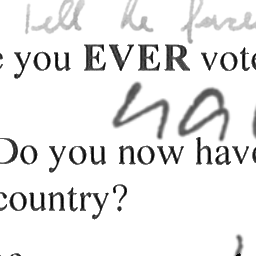 Tell he
e you EVER vote
Do you now have
country?